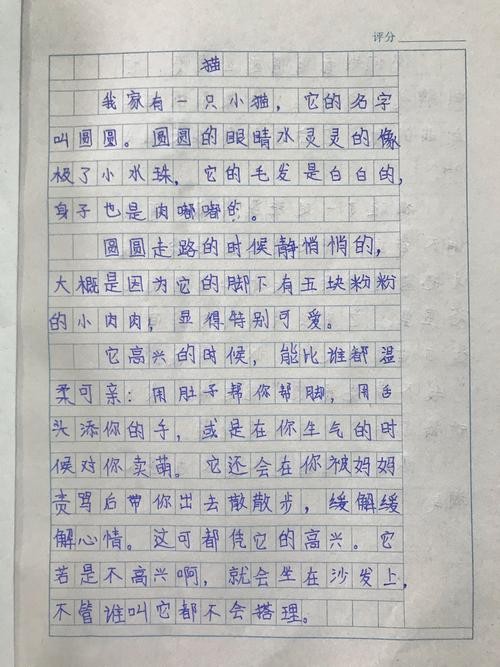 评分
猫
我家有一只小猫，它的名字
叫圆圆。圆圆的眼睛水灵灵的像
极了小水珠，它的毛发是白白的，
身子也是肉嘟嘟的。
圆圆走路的时候静悄悄的，
大概是因为它的脚下有五块粉粉
的小肉肉，显得特别可爱。
它高兴的时候，能比谁都温
柔可亲：用肚子帮你帮脚，用舌
头添你的手，或是在你生气的时
候对你卖萌。它还会在你被妈妈
责骂后带你出去散散步，缓解缓
解心情。这可都凭它的高兴。它
若是不高兴啊，就会坐在沙发上，
不管谁叫它都不会搭理。